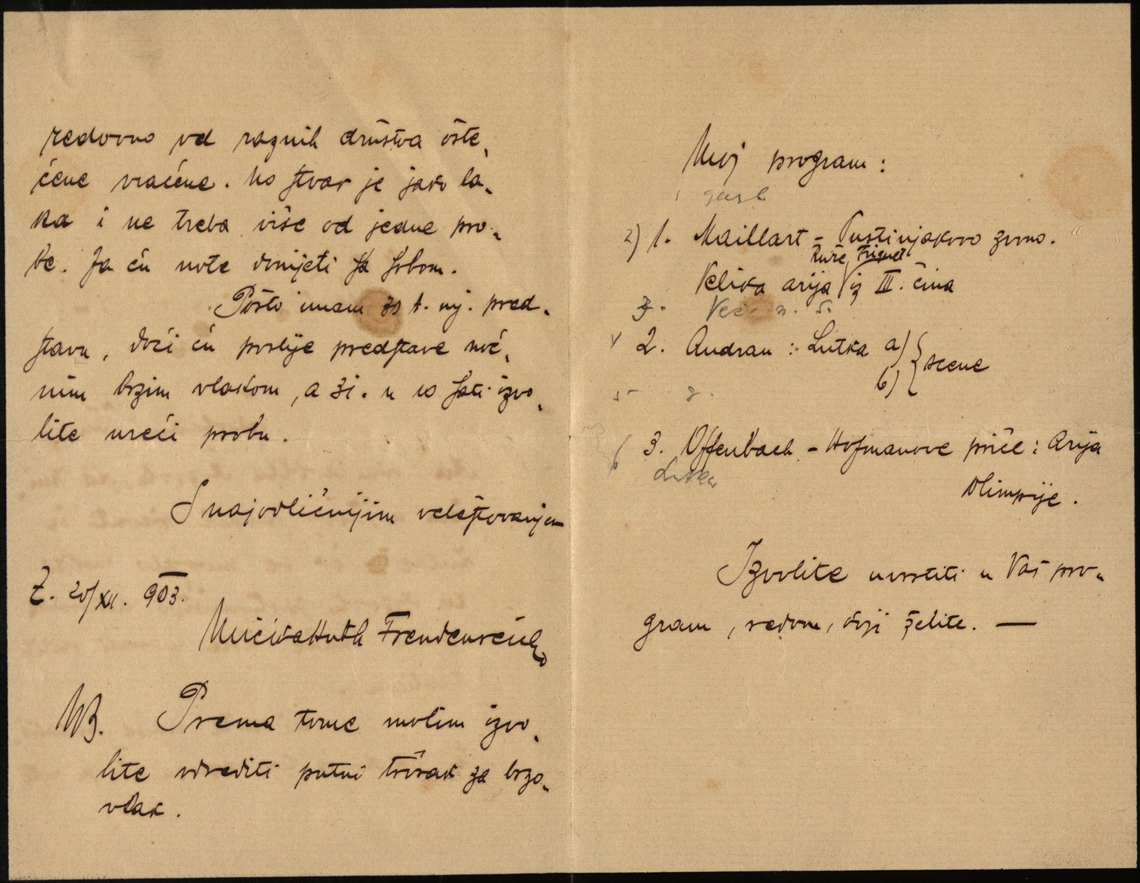 redovno od raznih društva ošte-
ćene vraćene. No stvar je jako la-
ka i ne treba više od jedne pro-
be. Ja ću note donijeti sa sobom.
Pošto imam 30 t. mj. pred-
stavu, doći ću poslije predstave noć-
nim brzim vlakom, a 31. u 10 sati izvo-
lite ureći probu.
S najodličnijim veleštovanjem
Z. 20/XII. 903.
Micika Freudenreich
NB. Prema tome molim izvo-
lite odrediti putni trošak za brzo-
vlak.
Moj program:
2) 1. Maillart – Pustinjakovo zvono.
Ruže Friquet
Velika arija iz III. čina
3.
2. Andran: Lutka a) scene
b)
5
6 3. Offenbach – Hofmanove priče: Arija
Lutka
Olimpije.
Izvolite uvrstiti u Vaš pro-
gram, redom, koji želite. —